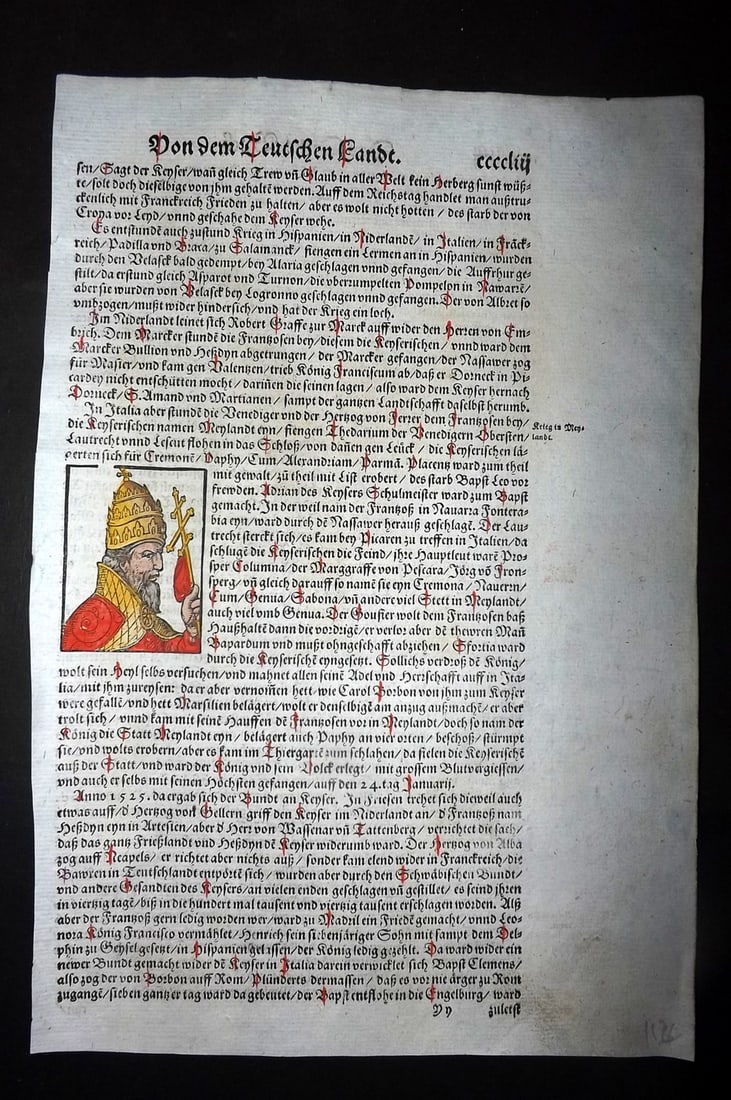 Von dem Teutschen Landt. ccccliïj
sen/Sagt der Keyser/wañ gleich Trew vñ Glaub in aller Welt kein Herberg sunst wüß-
te/solt doch dieselbige von jhm gehaltẽ werden. Auff dem Reichstag handlet man außtru-
ckenlich mit Franckreich Frieden zu halten/ aber es wolt nicht hotten/ des starb der von
Croya vor Leyd/vnnd geschahe dem Keyser wehe.
Es entstundẽ auch zustund Krieg in Hispanien/in Niderlandẽ/in Italien/in Frãck-
reich/Padilla vnd Vaca/zu Salamanck/ fiengen ein Lermen an in Hispanien/wurden
durch den Velasck bald gedempt/bey Alaria geschlagen vnnd gefangen/die Auffrhur ge-
stilt/da erstund gleich Asparot vnd Turnon/die vberrumpelten Pompelon in Nawarrẽ/
aber sie wurden von Velasck bey Logronno geschlagen vnnd gefangen. Der von Albret so
vmbzogen/mußt wider hindersich/vnd hat der Krieg ein loch.
Jm Niderlandt leinet sich Robert Graffe zur Marck auff wider den Herren von Em-
brich. Dem Marcker stundẽ die Frantzosen bey/diesem die Keyserischen/ vnnd ward dem
Marcker Bullion vnd Heßdyn abgetrungen/ der Marcker gefangen/der Nassawer zog
für Masier/vnd kam gen Valentzen/trieb König Franciscum ab/daß er Dorneck in Pi-
cardey nicht entschütten mocht/dariñen die seinen lagen/also ward dem Keyser hernach
Dorneck/S. Amand vnd Martianen/ sampt der gantzen Landtschafft daselbst herumb.
In Italia aber stundẽ die Venediger vnd der Hertzog von Ferrer dem Frantzosen bey/
die Keyserischen namen Meylandt eyn/ fiengen Thedarium der Venedigern Obersten/
Krieg in Mey-
landt.
Lautrecht vnnd Lescut flohen in das Schloß/von dañen gen Leück/ die Keyserischen lä-
gerten sich für Cremonẽ/Paphy/Cum/Alexandriam/Parmã. Placentz ward zum theil
mit gewalt/zũ theil mit List erobert/des starb Bapst Leo vor
frewden. Adrian des Keysers Schulmeister ward zum Bapst
gemacht. In der weil nam der Frantzoß in Nauarra Fontera-
bia eyn/ward durch dẽ Nassawer herauß geschlagẽ. Der Lau-
trecht sterckt sich/es kam bey Picaren zu treffen in Italien/da
schlugẽ die Keyserischen die Feind/jhre Hauptleut warẽ Pro-
sper Columna/der Marggraffe von Pescara/Jörg võ Fron-
sperg/vñ gleich darauff so namẽ sie eyn Cremona/Nauern/
Cum/Genua/Sabona/vñ andere viel Stett in Meylandt/
auch viel vmb Genua. Der Gouffier wolt dem Frantzosen baß
Haußhaltẽ dann die vordrigẽ/er verlor aber dẽ thewren Mañ
Bapardum vnd mußt ohngeschafft abziehen/ Sfortia ward
durch die Keyserischẽ eyngesetzt. Sollichs verdroß dẽ König/
wolt sein Heyl selbs versuchen/vnd mahnet allen seinẽ Adel vnd Herrschafft auff in Ita-
lia/mit jhm zureysen: da er aber vernommen hett/wie Carol Borbon von jhm zum Keyser
were gefallẽ/vnd hett Marsilien belägert/wolt er denselbigẽ am anzug außmachẽ/er aber
trolt sich/ vnnd kam mit seinẽ Hauffen dẽ Frantzosen vor in Meylandt/doch so nam der
König die Statt Meylandt eyn/ belägert auch Paphy an vier orten/ beschoß/stürmpt
sie/vnd wolts erobern/aber es kam im Thiergartẽ zum schlahen/da fielen die Keyserischẽ
auß der Statt/vnd ward der König vnd sein Volck erlegt/mit grossem Blutvergiessen/
vnd auch er selbs mit seinen Höchsten gefangen/auff den 24. tag Januarij.
Anno 1525. da ergab sich der Bundt an Keyser. In Friesen trehet sich dieweil auch
etwas auff/d' Hertzog von Gellern griff den Keyser im Niderlandt an/d' Frantzoß nam
Heßdyn eyn in Artesien/aber d' Herr von Wassenar vñ Tattenberg/ verrichtet die sach/
daß das gantz Frießlandt vnd Heßdyn dẽ Keyser widerumb ward. Der Hertzog von Alba
zog auff Neapels/er richtet aber nichts auß/ sonder kam elend wider in Franckreich/die
Bawren in Teutschlandt entpörtẽ sich/wurden aber durch den Schwäbischen Bundt/
vnd andere Gesandten des Keysers/an vielen enden geschlagen vñ gestillet/es seind jhren
in viertzig tagẽ/biß in die hundert mal tausent vnd viertzig tausent erschlagen worden. Alß
aber der Frantzoß gern ledig worden wer/ward zu Madril ein Friedẽ gemacht/vnnd Leo-
nora König Francisco vermählet/Henrich sein siebenjäriger Sohn mit sampt dem Del-
phin zu Geysel gesetzt/in Hispanien gelassen/der König ledig gezehlt. Da ward wider ein
newer Bundt gemacht wider dẽ Keyser in Italia darein verwicklet sich Bapst Clemens/
also zog der von Borbon auff Rom/Plünderts dermassen/ daß es vor nie ärger zu Rom
zugangẽ/sieben gantzer tag ward da gebeutet/der Bapst entflohe in die Engelburg/ward
Yy zuletst